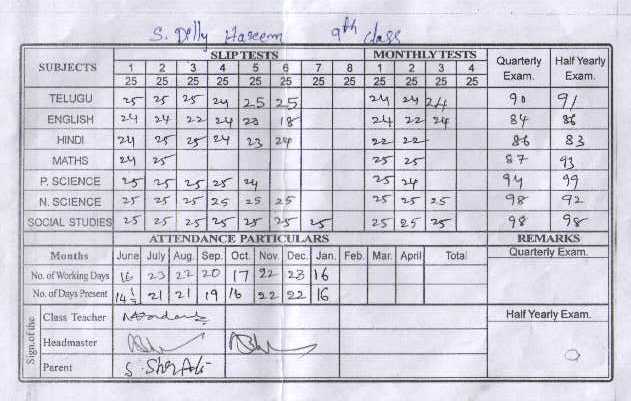 S. Dilly Hareem 9th class
SUBJECTS SLIP TESTS MONTHLY TESTS Quarterly Exam. Half Yearly Exam.
1 2 3 4 5 6 7 8 1 2 3 4
25 25 25 25 25 25 25 25 25 25 25 25
TELUGU 25 25 25 24 25 25 24 24 24 90 91
ENGLISH 24 24 22 24 23 18 24 22 24 84 86
HINDI 24 25 25 24 23 24 22 22 86 83
MATHS 24 25 25 25 87 93
P. SCIENCE 25 25 25 25 24 25 24 94 99
N. SCIENCE 25 25 25 25 25 25 25 25 25 98 92
SOCIAL STUDIES 25 25 25 25 25 25 25 25 25 25 98 98
ATTENDANCE PARTICULARS REMARKS
Months June July Aug. Sep. Oct. Nov. Dec. Jan. Feb. Mar. April Total Quarterly Exam.
No. of Working Days 16 23 22 20 17 22 23 16
No. of Days Present 14 1/2 21 21 19 16 22 22 16
Sign.of the
Class Teacher Half Yearly Exam.
Headmaster
Parent S. Sher Ali